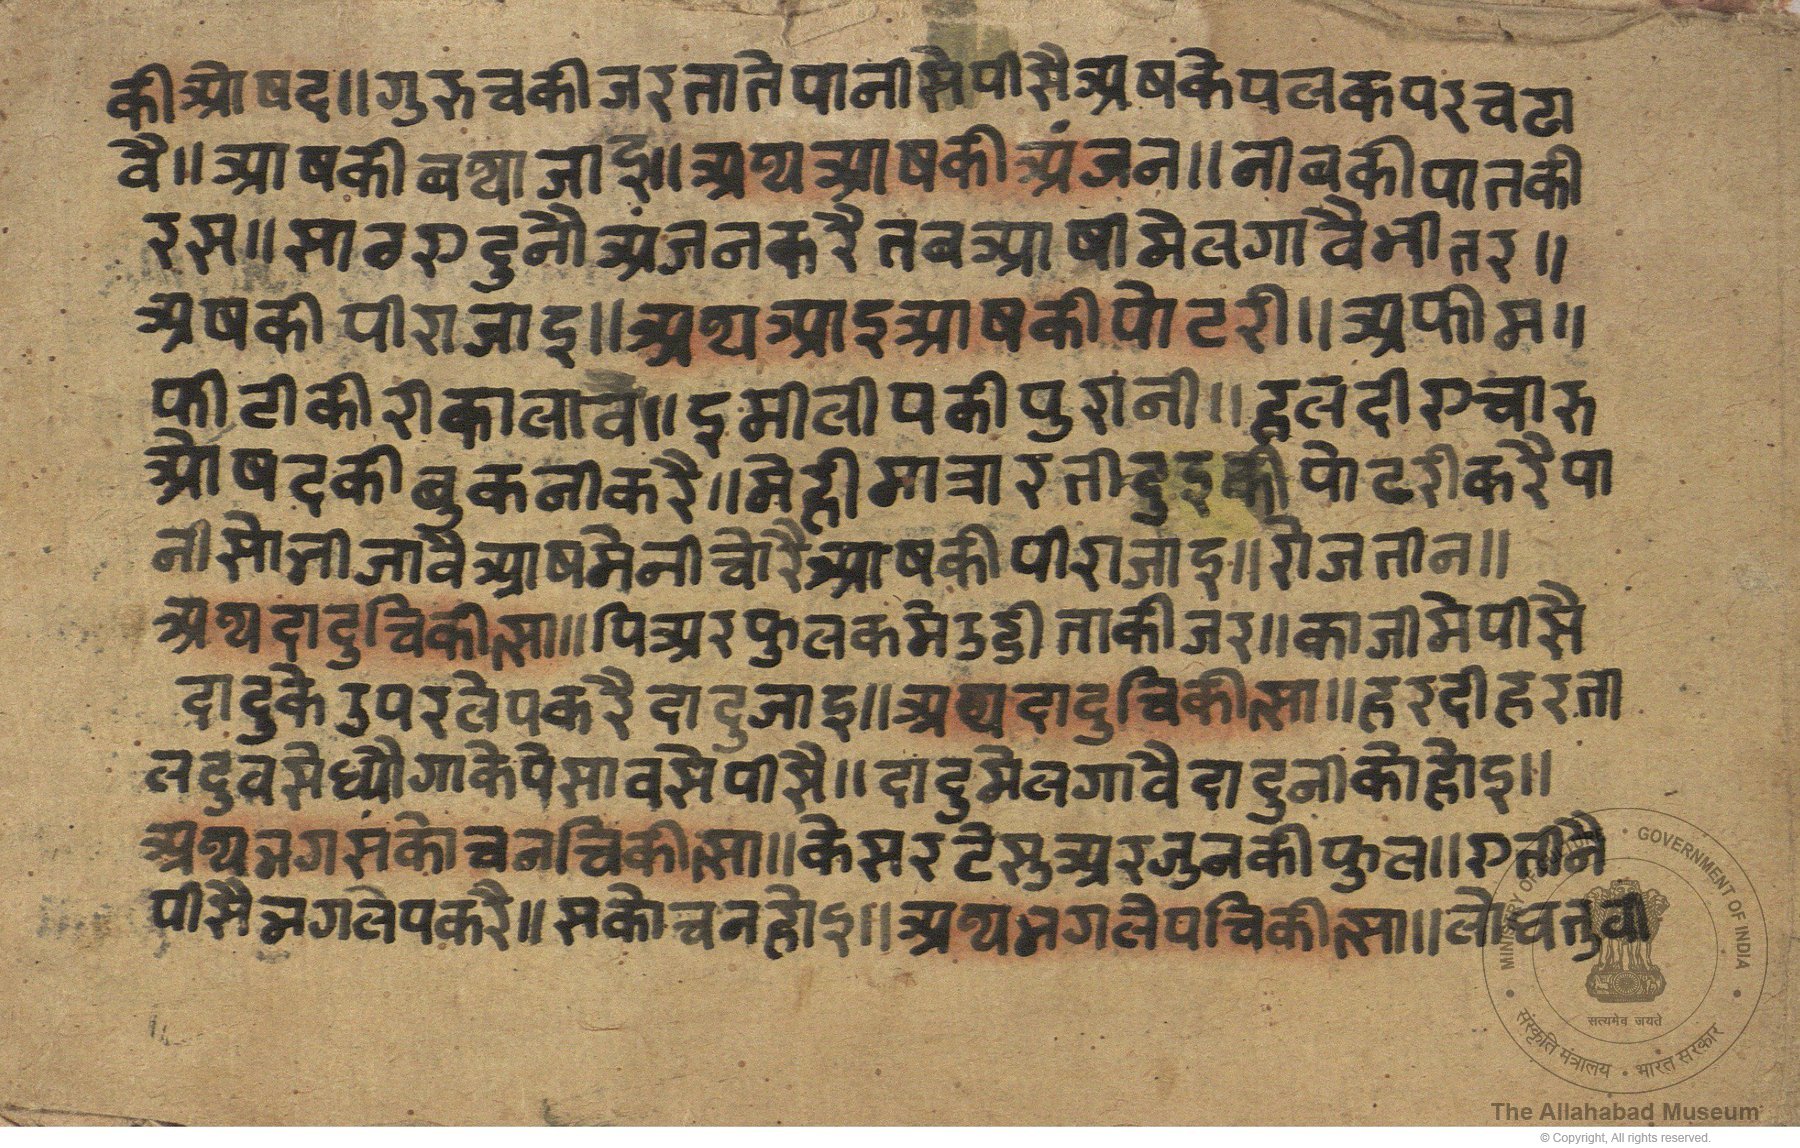 की औषद॥ गुरुच की जर ताते पानी सै पीसै अष के पलक पर चढा
वै॥ आष की बथा जाइ॥ अथ आष की अंजन॥ नीब की पात की
रस॥ साठ ए दुनौ अंजन करै तब आषी मे लगावै भीतर॥
अष की पीरा जाइ॥ अथ आइ आष की पोटरी॥ अफीम॥
फीटीकीरी का लावै॥ इमीली पकी पुरानी॥ हलदी ए चारु
औषद की बुकनी करै॥ मेही मात्रा रती दुइ की पोटरी करै पा
नी सो भीजावै आष मे नीचोरै आष की पीरा जाइ॥ रोज तीन॥
अथ दादु चिकीत्सा॥ पिअर फुल कमेउडी ता की जर॥ काजी मे पीसै
दादु के उपर लेप करै दादु जाइ॥ अथ दादु चिकीत्सा॥ हरदी हरता
ल दुव सेध्यौ गा के पेसाव से पीसै॥ दादु मे लगावै दादु नीको होइ॥
अथ भग संकोचन चिकीत्सा॥ केसर टेसु अरजुन की फुल॥ ए तीनै
पीसै भग लेप करै॥ सकोचन होइ॥ अथ भग लेप चिकीत्सा॥ लोध तुवी
MINISTRY OF CULTURE • GOVERNMENT OF INDIA
सत्यमेव जयते
संस्कृति मंत्रालय • भारत सरकार
The Allahabad Museum
© Copyright, All rights reserved.